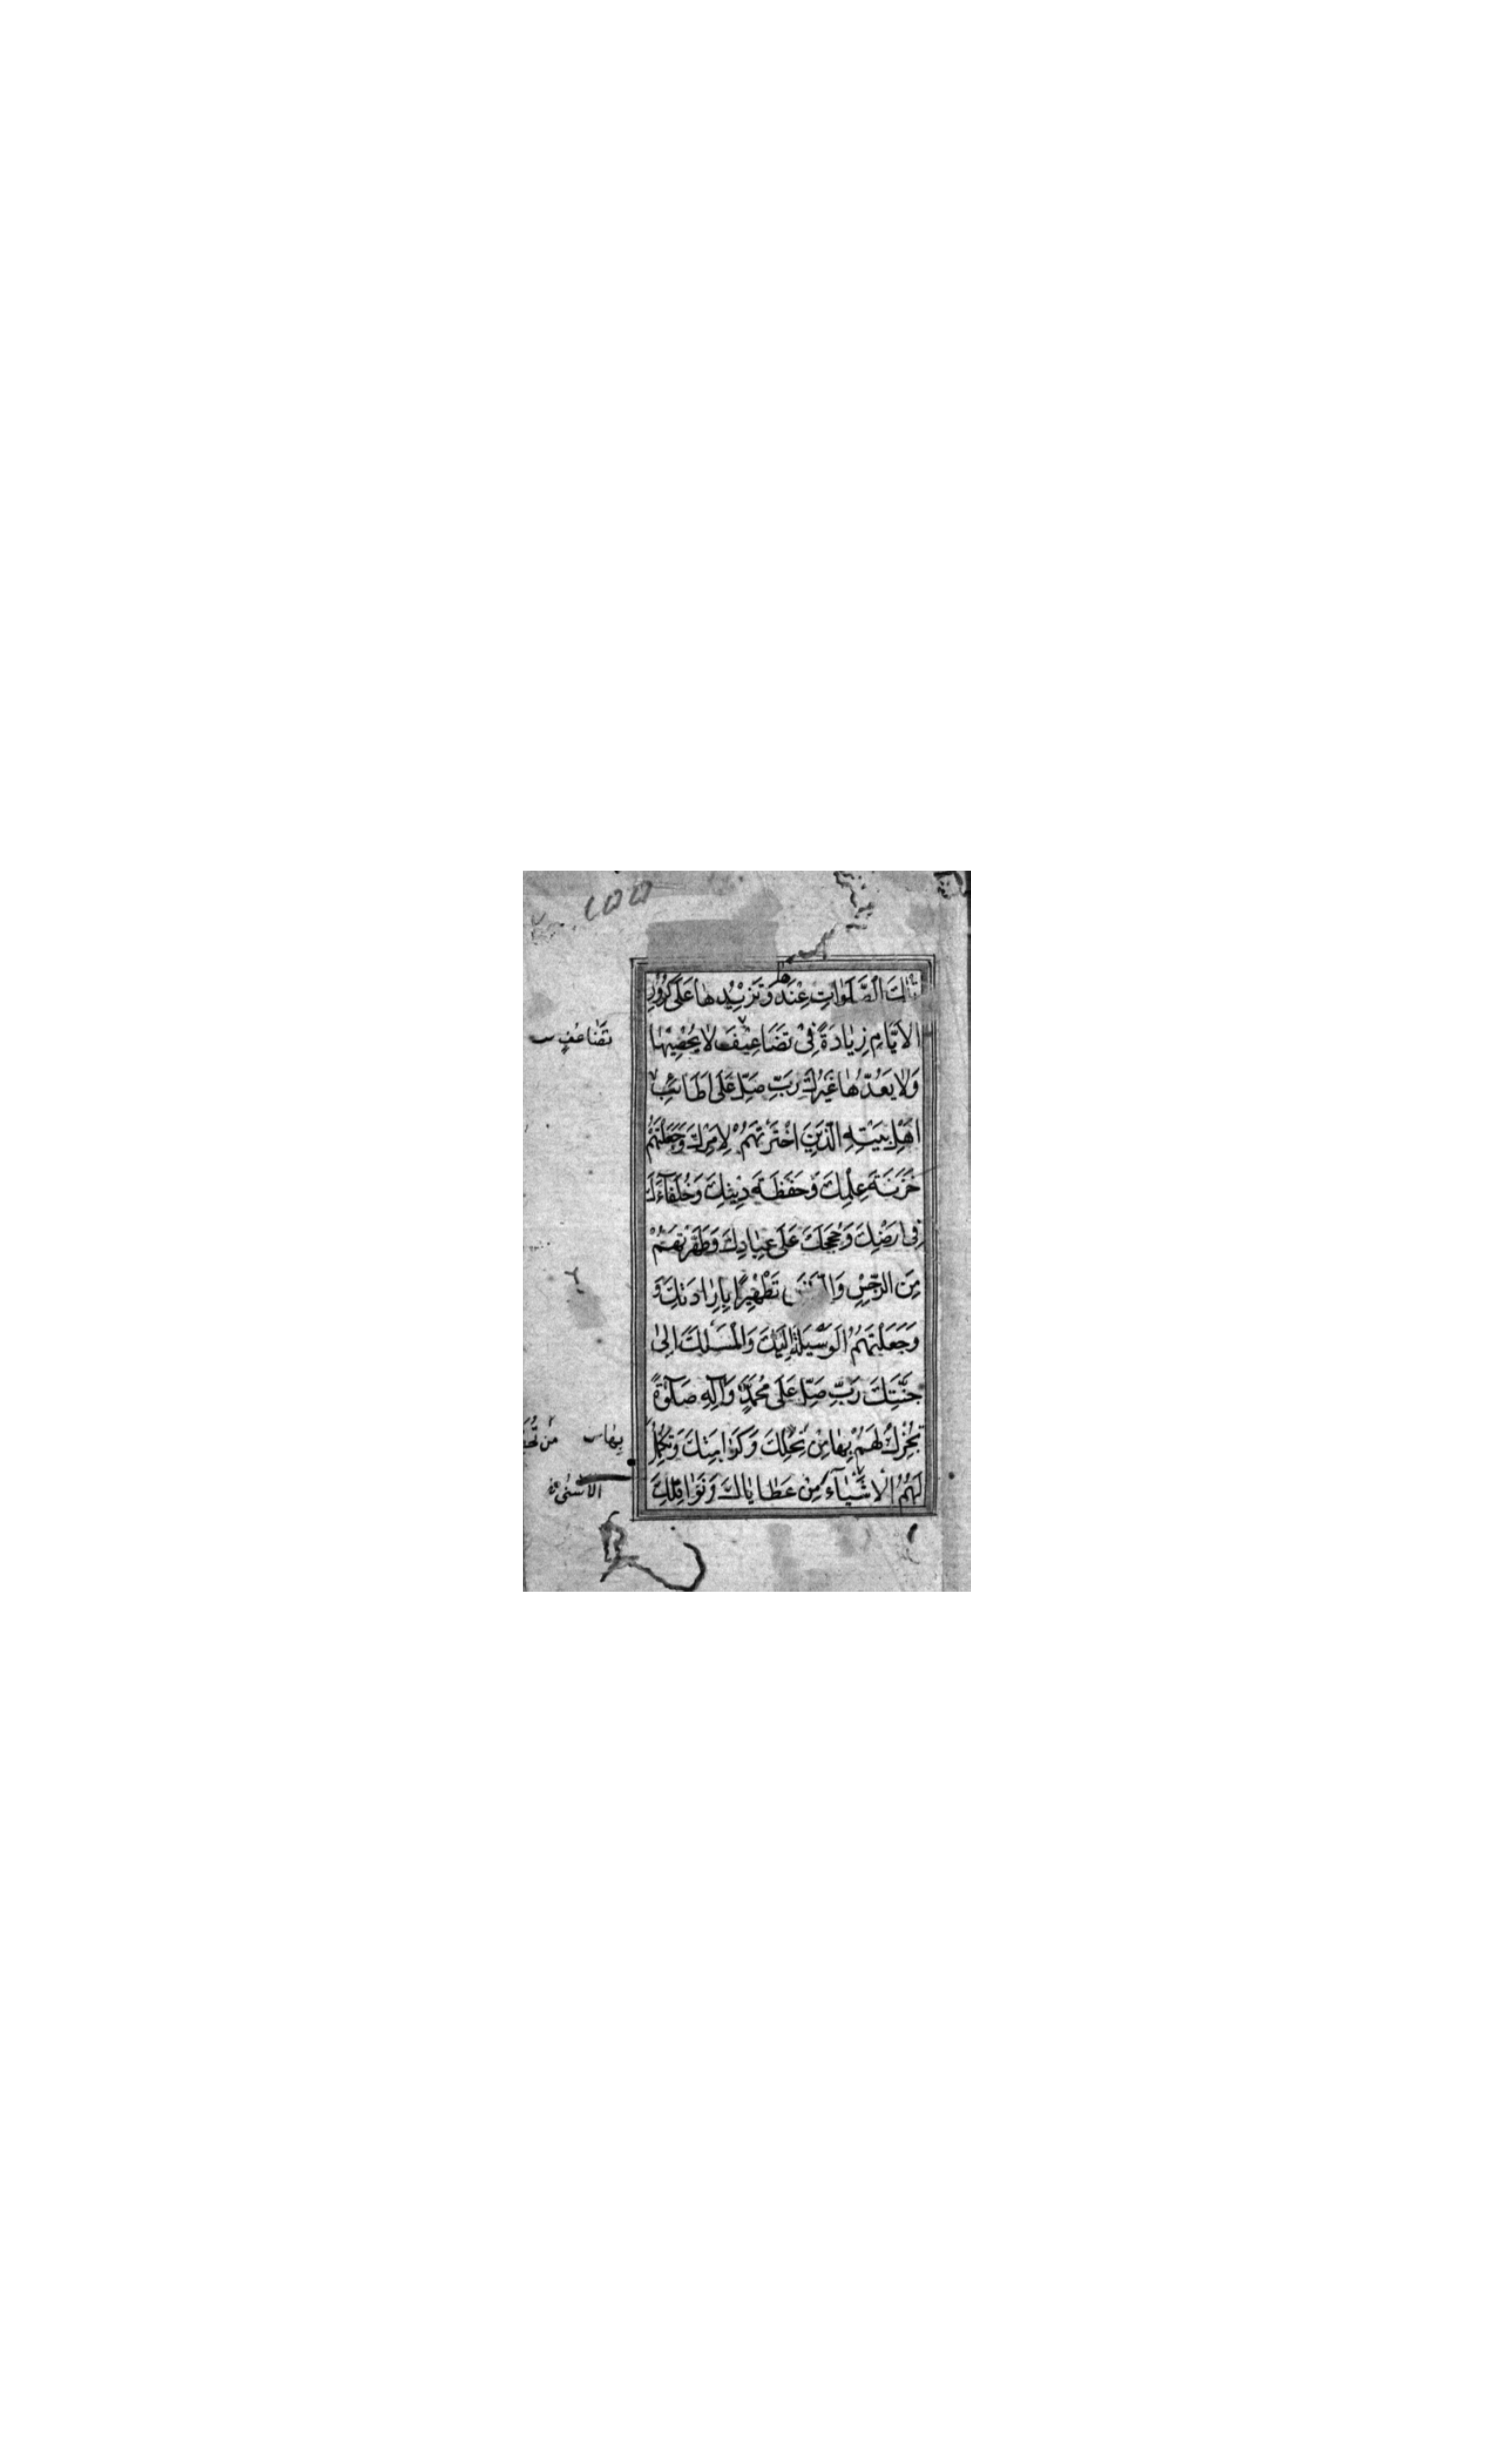 تِلْكَ الصَّلَوَاتِ عِنْدَهَا وَتَزِيدُهَا عَلَى كُرُورِ
الْاَيَّامِ زِيَادَةً فِى تَضَاعِيفَ لَا يُحْصِيهَا
وَلَا يَعُدُّهَا غَيْرُكَ رَبِّ صَلِّ عَلَى اَطَائِبِ
اَهْلِ بَيْتِهِ الَّذِينَ اخْتَرْتَهُمْ لِاَمْرِكَ وَجَعَلْتَهُمْ
خَزَنَةَ عِلْمِكَ وَحَفَظَةَ دِينِكَ وَخُلَفَآءَكَ
فِى اَرْضِكَ وَحُجَجَكَ عَلَى عِبَادِكَ وَطَهَّرْتَهُمْ
مِنَ الرِّجْسِ وَالدَّنَسِ تَطْهِيرًا بِاِرَادَتِكَ وَ
وَجَعَلْتَهُمُ الْوَسِيلَةَ اِلَيْكَ وَالْمَسْلَكَ اِلىٰ
جَنَّتِكَ رَبِّ صَلِّ عَلَى مُحَمَّدٍ وَآلِهِ صَلٰوةً
تُجْزِلُ لَهُمْ بِهَا مِنْ نِحَلِكَ وَكَرَامَتِكَ وَتُكْمِلُ
لَهُمُ الْاَشْيَآءَ مِنْ عَطَايَاكَ وَنَوَافِلِكَ
تضاعف
بها من
الاسنى
١٥٥